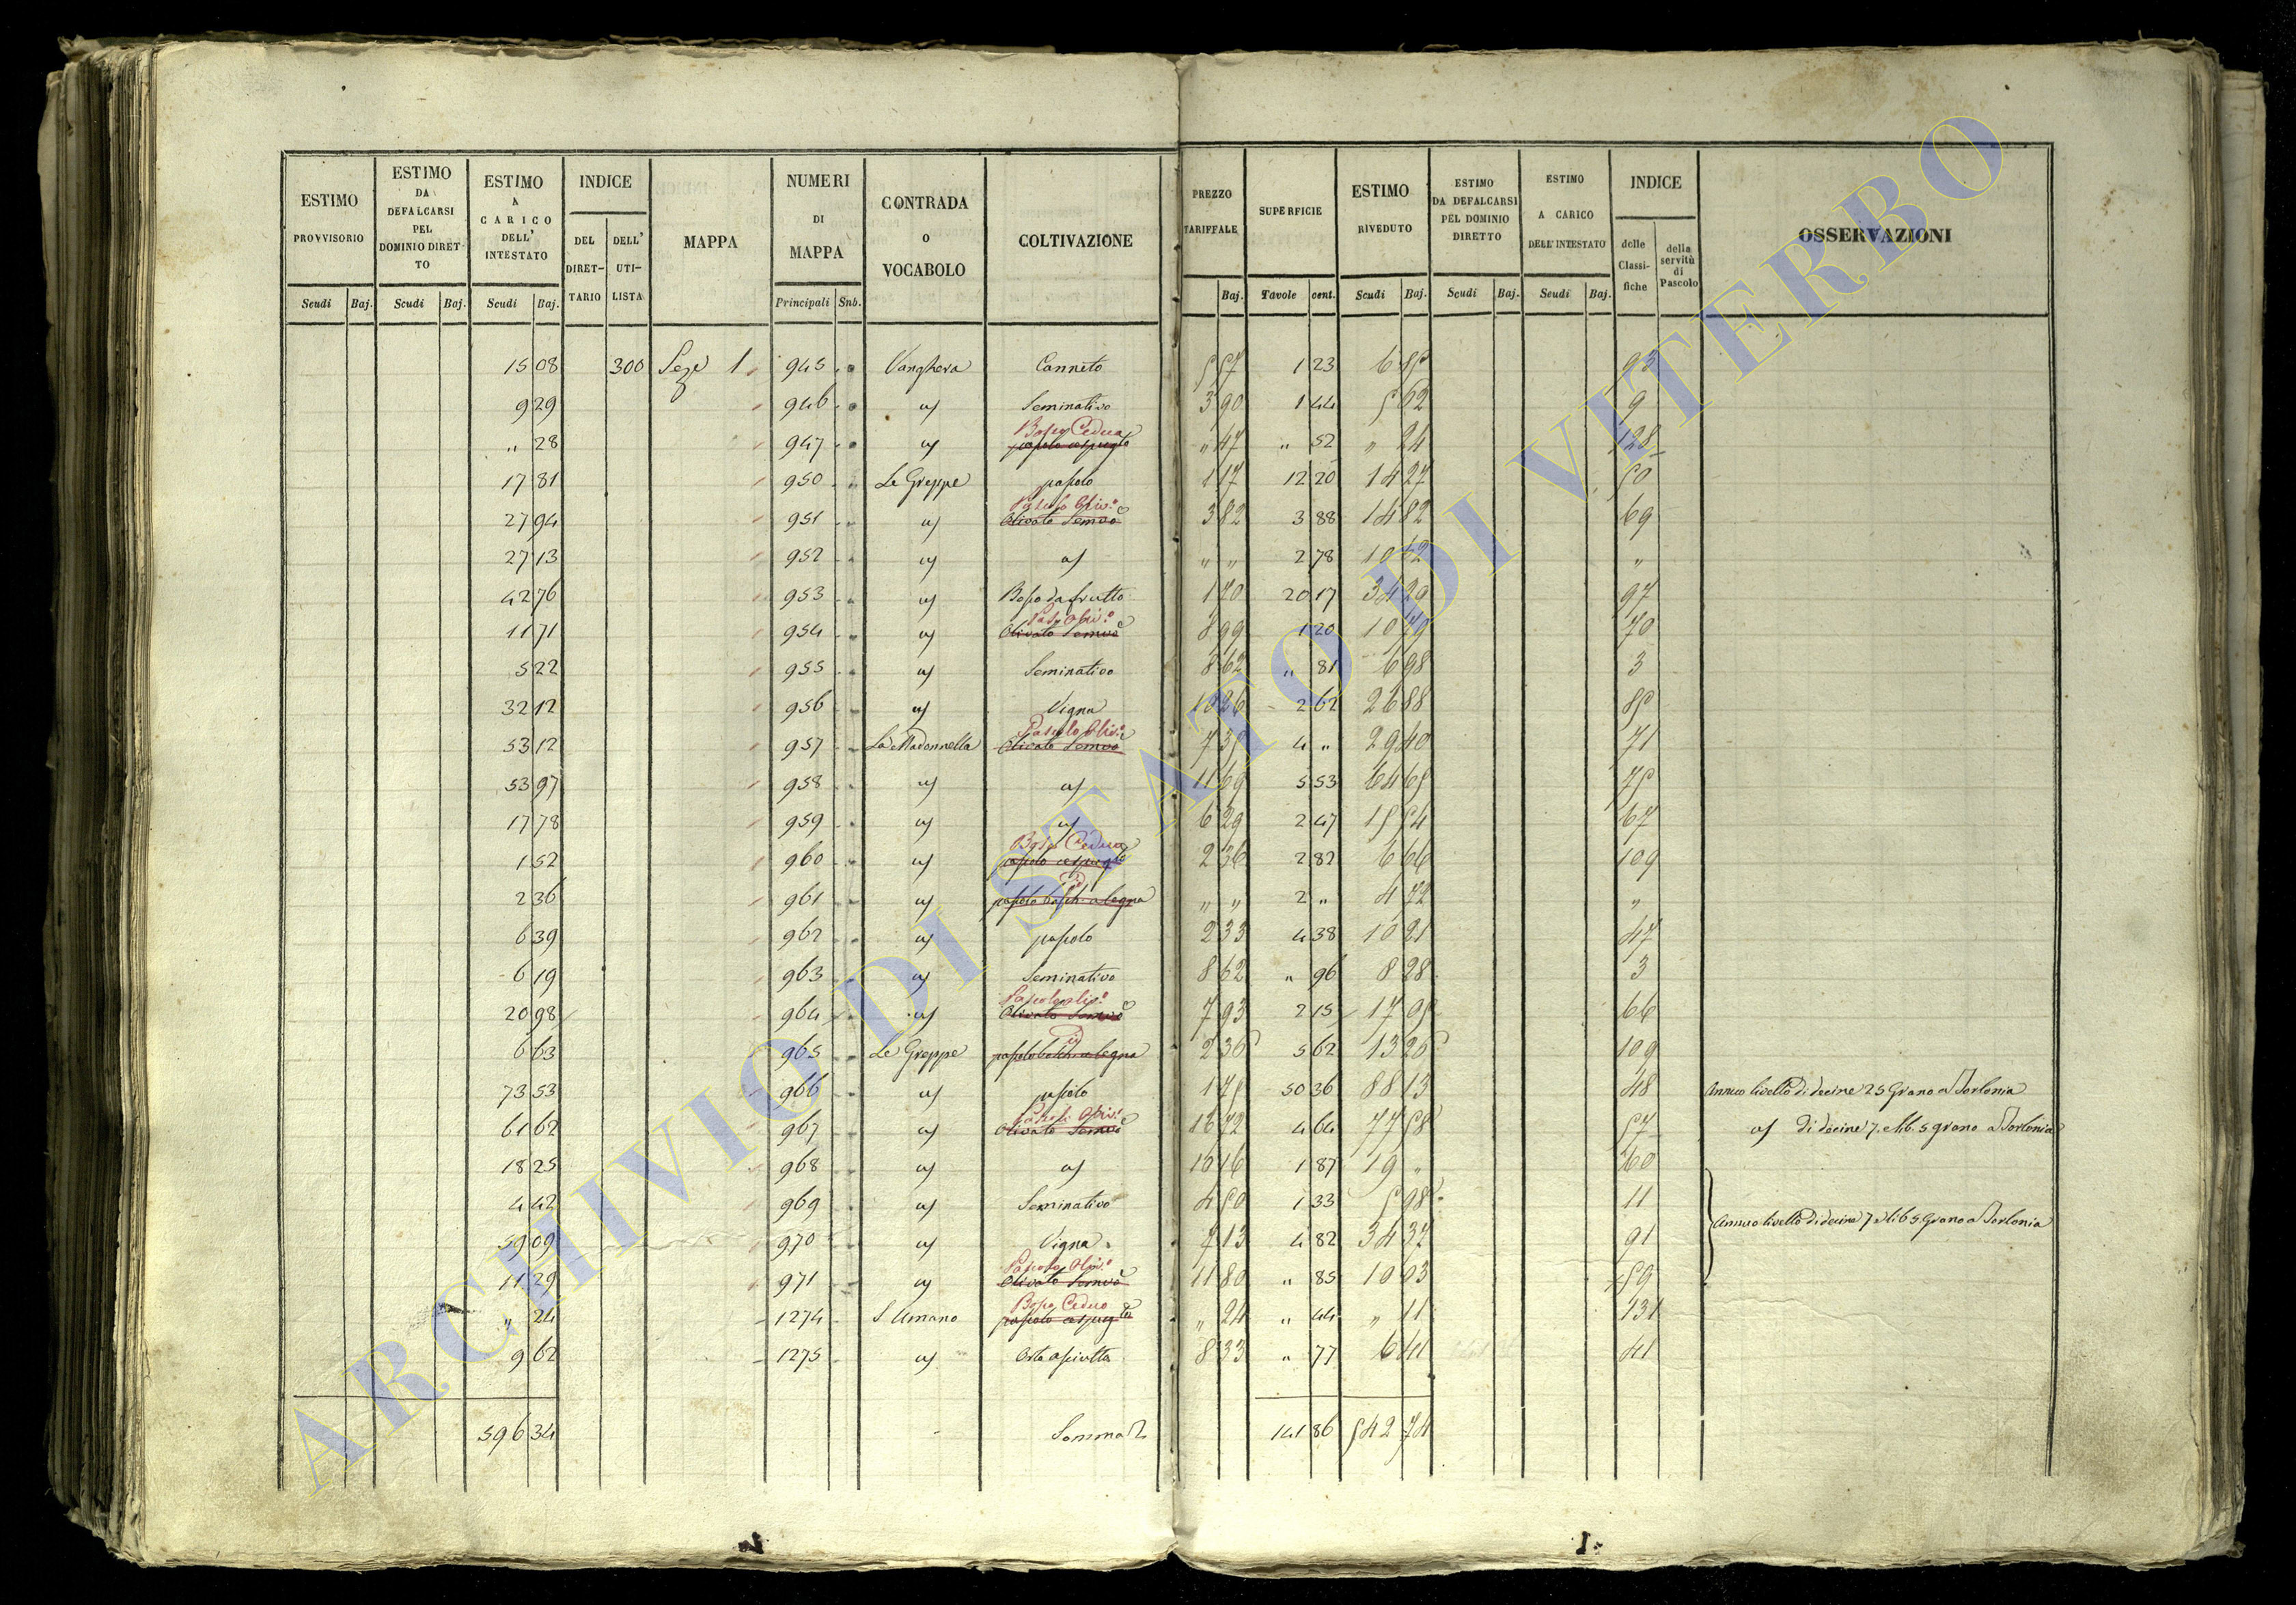 ESTIMO PROVVISORIO Scudi Baj.
ESTIMO DA DEFALCARSI PEL DOMINIO DIRETTO Scudi Baj.
ESTIMO A CARICO DELL' INTESTATO Scudi Baj.
INDICE DEL DIRET-TARIO DELL' UTI-LISTA
MAPPA
NUMERI DI MAPPA Principali Snb.
CONTRADA O VOCABOLO
COLTIVAZIONE
PREZZO TARIFFALE Baj.
SUPERFICIE Tavole cent.
ESTIMO RIVEDUTO Scudi Baj.
ESTIMO DA DEFALCARSI PEL DOMINIO DIRETTO Scudi Baj.
ESTIMO A CARICO DELL' INTESTATO Scudi Baj.
INDICE delle Classi-fiche della servitù di Pascolo
OSSERVAZIONI
15 08 300 Seze 1 945 Vanghera Canneto 5 57 1 23 6 85 93
9 29 946 Seminativo 3 90 1 44 5 62 9
" 28 947 Bosco Ceduo " 47 " 52 " 24 128
17 81 950 Le Greppe pascolo 1 17 12 20 14 27 50
27 94 951 Pascolo Oliv.o Olivato Semvo 3 82 3 88 14 82 69
27 13 952 " " 2 78 10 62 "
42 76 953 Bosco da frutto 1 70 20 17 34 29 97
11 71 954 Pasc. Oliv.o Olivato Semvo 8 99 1 20 10 79 70
5 22 955 Seminativo 8 62 " 81 6 98 3
32 12 956 Vigna 10 26 2 62 26 88 85
53 12 957 La Madonnella Pascolo Oliv.o Olivato Semvo 7 35 4 " 29 40 71
53 97 958 11 69 5 53 64 65 75
17 78 959 6 29 2 47 15 54 67
1 52 960 Bosco Ceduo 2 36 2 82 6 66 109
2 36 961 pascolo bosch. a legna " " 2 " 4 72 "
6 39 962 pascolo 2 33 4 38 10 21 47
6 19 963 Seminativo 8 62 " 96 8 28 3
20 98 964 Pascolo oliv.o Olivato Semvo 7 93 2 15 17 05 66
6 63 965 Le Greppe pascolo bosch. a legna 2 36 5 62 13 26 109
73 53 966 pascolo 1 75 50 36 88 13 48 Annuo livello di decine 25 Grano a Torlonia
61 62 967 Pascolo Oliv.o Olivato Semvo 16 72 4 64 77 58 57 di decine 7. e lib. 5 grano a Torlonia
18 25 968 10 16 1 87 19 " 60
4 42 969 Seminativo 4 50 1 33 5 98 11
59 09 970 Vigna 7 13 4 82 34 37 91 Annuo livello di decine 7 e lib 5 Grano a Torlonia
11 29 971 Pascolo Oliv.o Olivato Semvo 11 80 " 85 10 03 59
" 24 1274 S. Amano Bosco Ceduo " 24 " 44 " 11 131
9 62 1275 Orto asciutto 8 33 " 77 6 41 41
596 34 Somma 141 86 542 74
ARCHIVIO DI STATO DI VITERBO